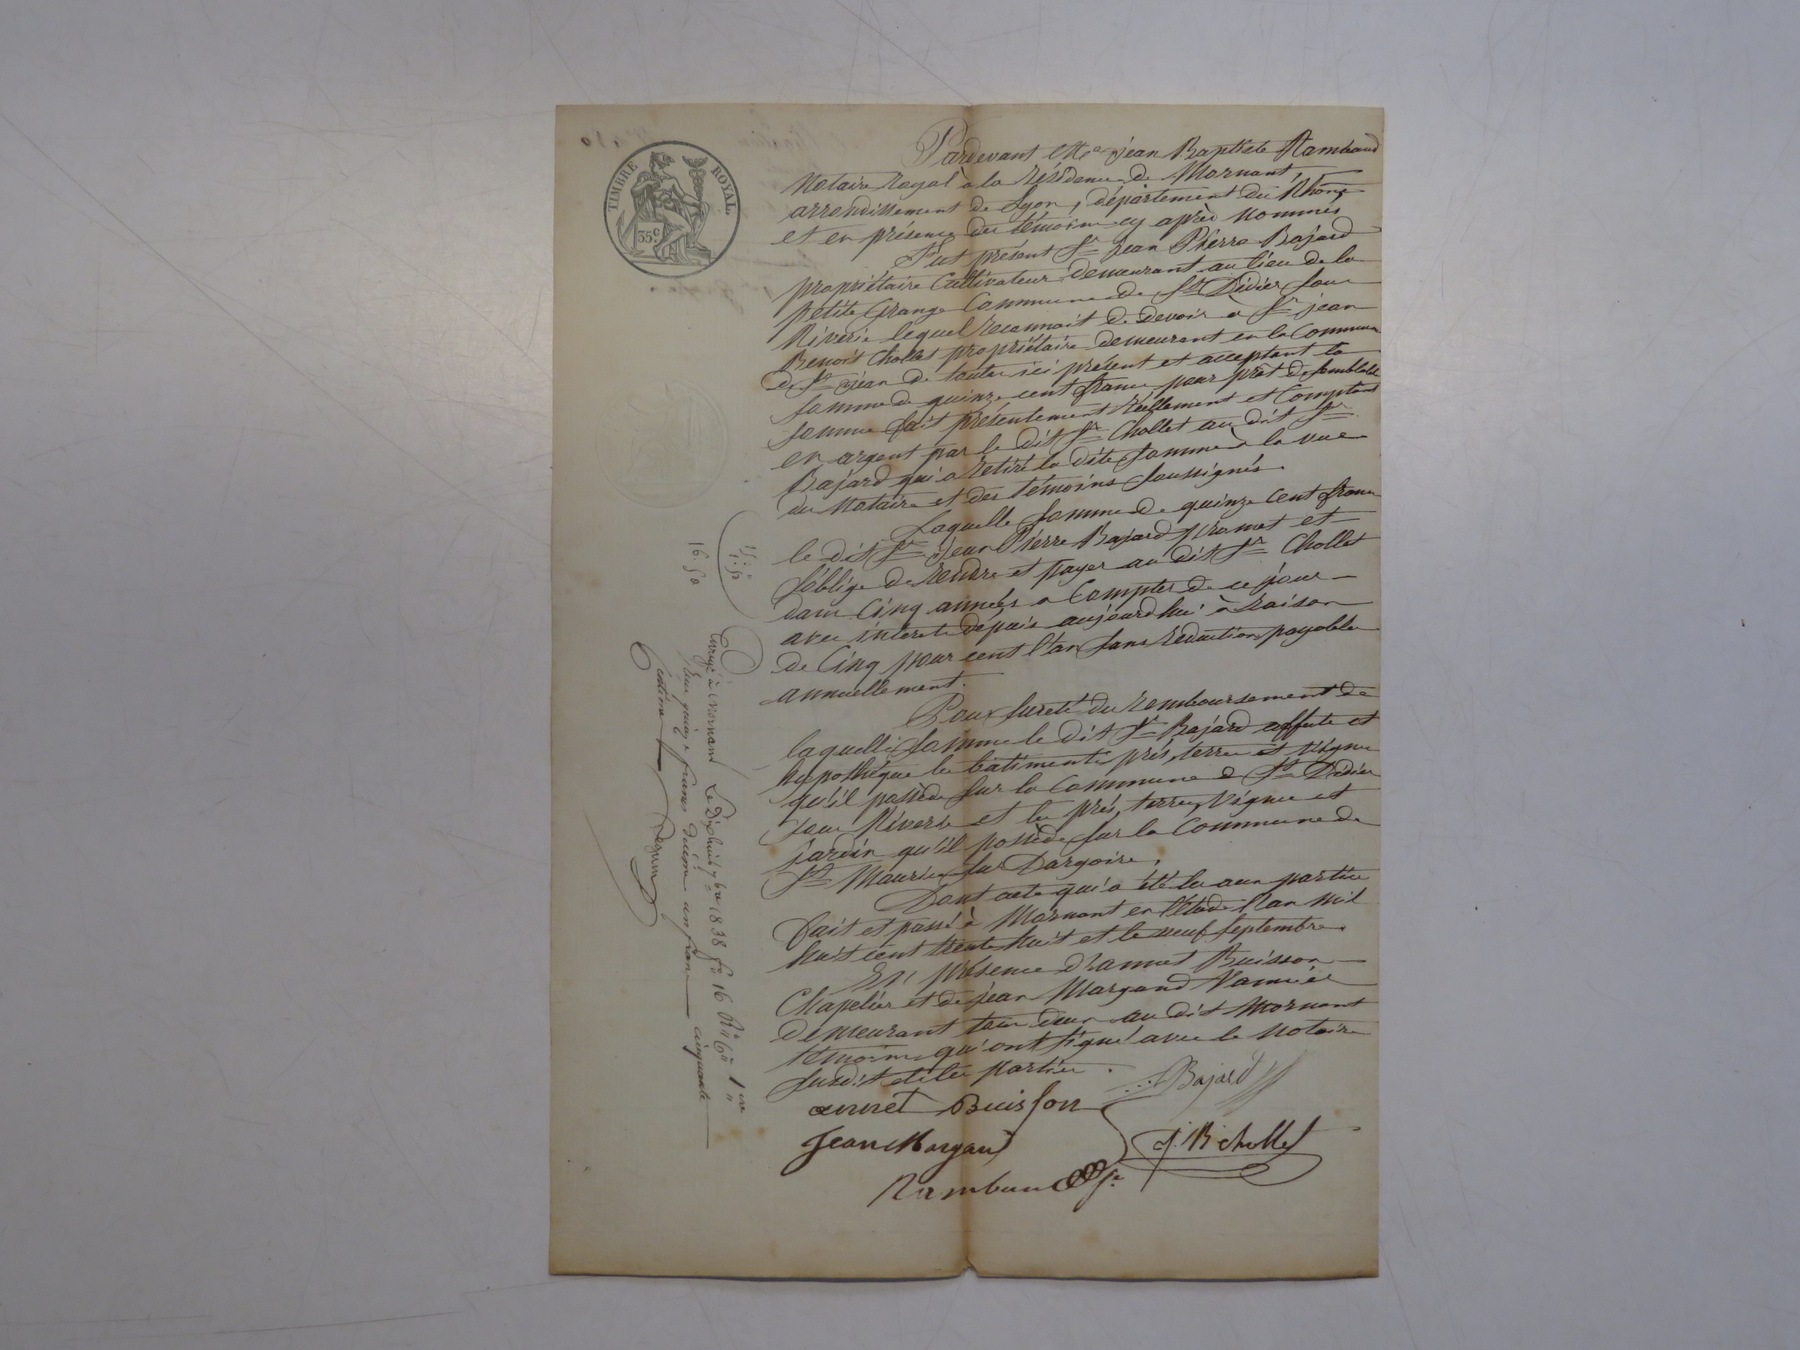 TIMBRE ROYAL.
35 c.
Pardevant Me jean Baptiste Rambaud
Notaire royal à la résidence de Mornant,
arrondissement de Lyon, département du Rhône
et en présence des témoins cy après nommés
Fut présent Sr jean Pierre Bajard
propriétaire Cultivateur demeurant au lieu de la
petite Grange Commune de St Didier sous
Riverie lequel reconnait de devoir à Sr jean
Benoit Chollet propriétaire demeurant en la Commune
de St jean de toulas ici présent et acceptant la
somme de quinze cent francs pour prêt de semblable
somme fait présentement réellement et Comptant
en argent par le dit Sr Chollet au dit Sr
Bajard qui a retiré la dite somme à la vue
du Notaire et des témoins soussignés.
Laquelle somme de quinze cent francs
le dit Sr jean Pierre Bajard promet et
s'oblige de rendre et payer au dit Sr Chollet
dans Cinq années a Compter de ce jour
avec intérets depuis aujourd'hui à raison
de Cinq pour cent l'an sans réduction, payable
annuellement.
Pour sureté du remboursement de
laquelle somme le dit Sr Bajard affecte et
hypothèque les batiments, prés, terres et vignes
qu'il possède sur la Commune de St Didier
sous Riverie et les prés, terres, vignes et
jardin qu'il possède sur la Commune de
St Maurice sur Dargoire.
Dont acte qui a été lu aux parties
Fait et passé à Mornant en l'étude l'an mil
huit cent trente huit et le neuf septembre.
En présence d'annet Buisson
Chapelier et de jean Margand Vannier
demeurant tous deux au dit Mornant
témoins qui ont signé avec le Notaire
susdit et les parties.
Bajard
annet Buisson
Jean Margand
J. B. chollet
Rambaud
15. "
1. 50
16. 50
à Mornant Le Dixhuit 7bre 1838 fo 16 Ro
quinze francs dixième un franc cinquante
centimes